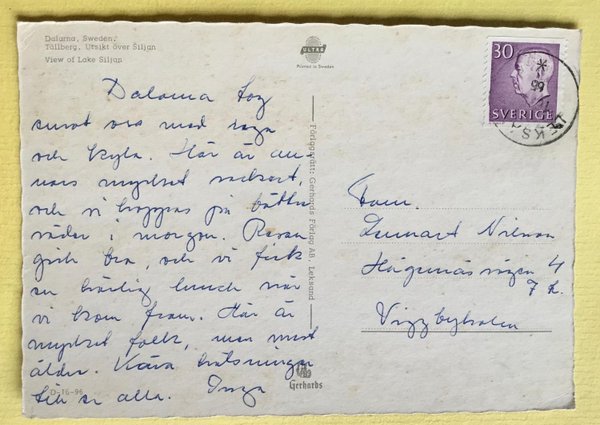 Dalarna, Sweden.
Tällberg. Utsikt över Siljan
View of Lake Siljan
ULTRA
Printed in Sweden
30
SVERIGE
65
Dalarna tog
emot oss med
och kyla. Här är an-
nars mycket vackert,
och vi hoppas på bättre
väder i morgon. Resan
gick bra, och vi fick
en härlig lunch när
vi kom fram. Här är
mycket folk, men mest
äldre. Kära hälsningar
till er alla. Inga
Förlagsrätt: Gerhards Förlag AB, Leksand
Fam.
Lennart Nilsson
Hägernäsvägen 4
7 tr.
Viggbyholm
D-16-96
Gerhards